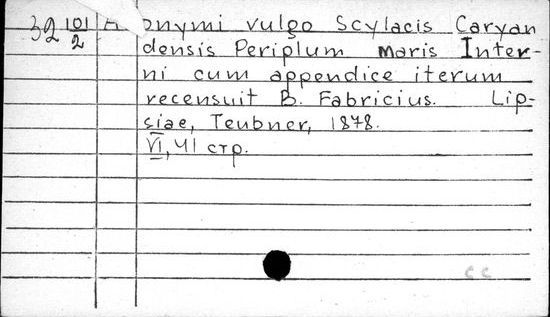 32 101/2 A onymi vulgo Scylacis Caryan
densis Periplum maris Inter-
ni cum appendice iterum
recensuit B. Fabricius. Lip-
siae, Teubner, 1878.
VI, 41 стр.
сс